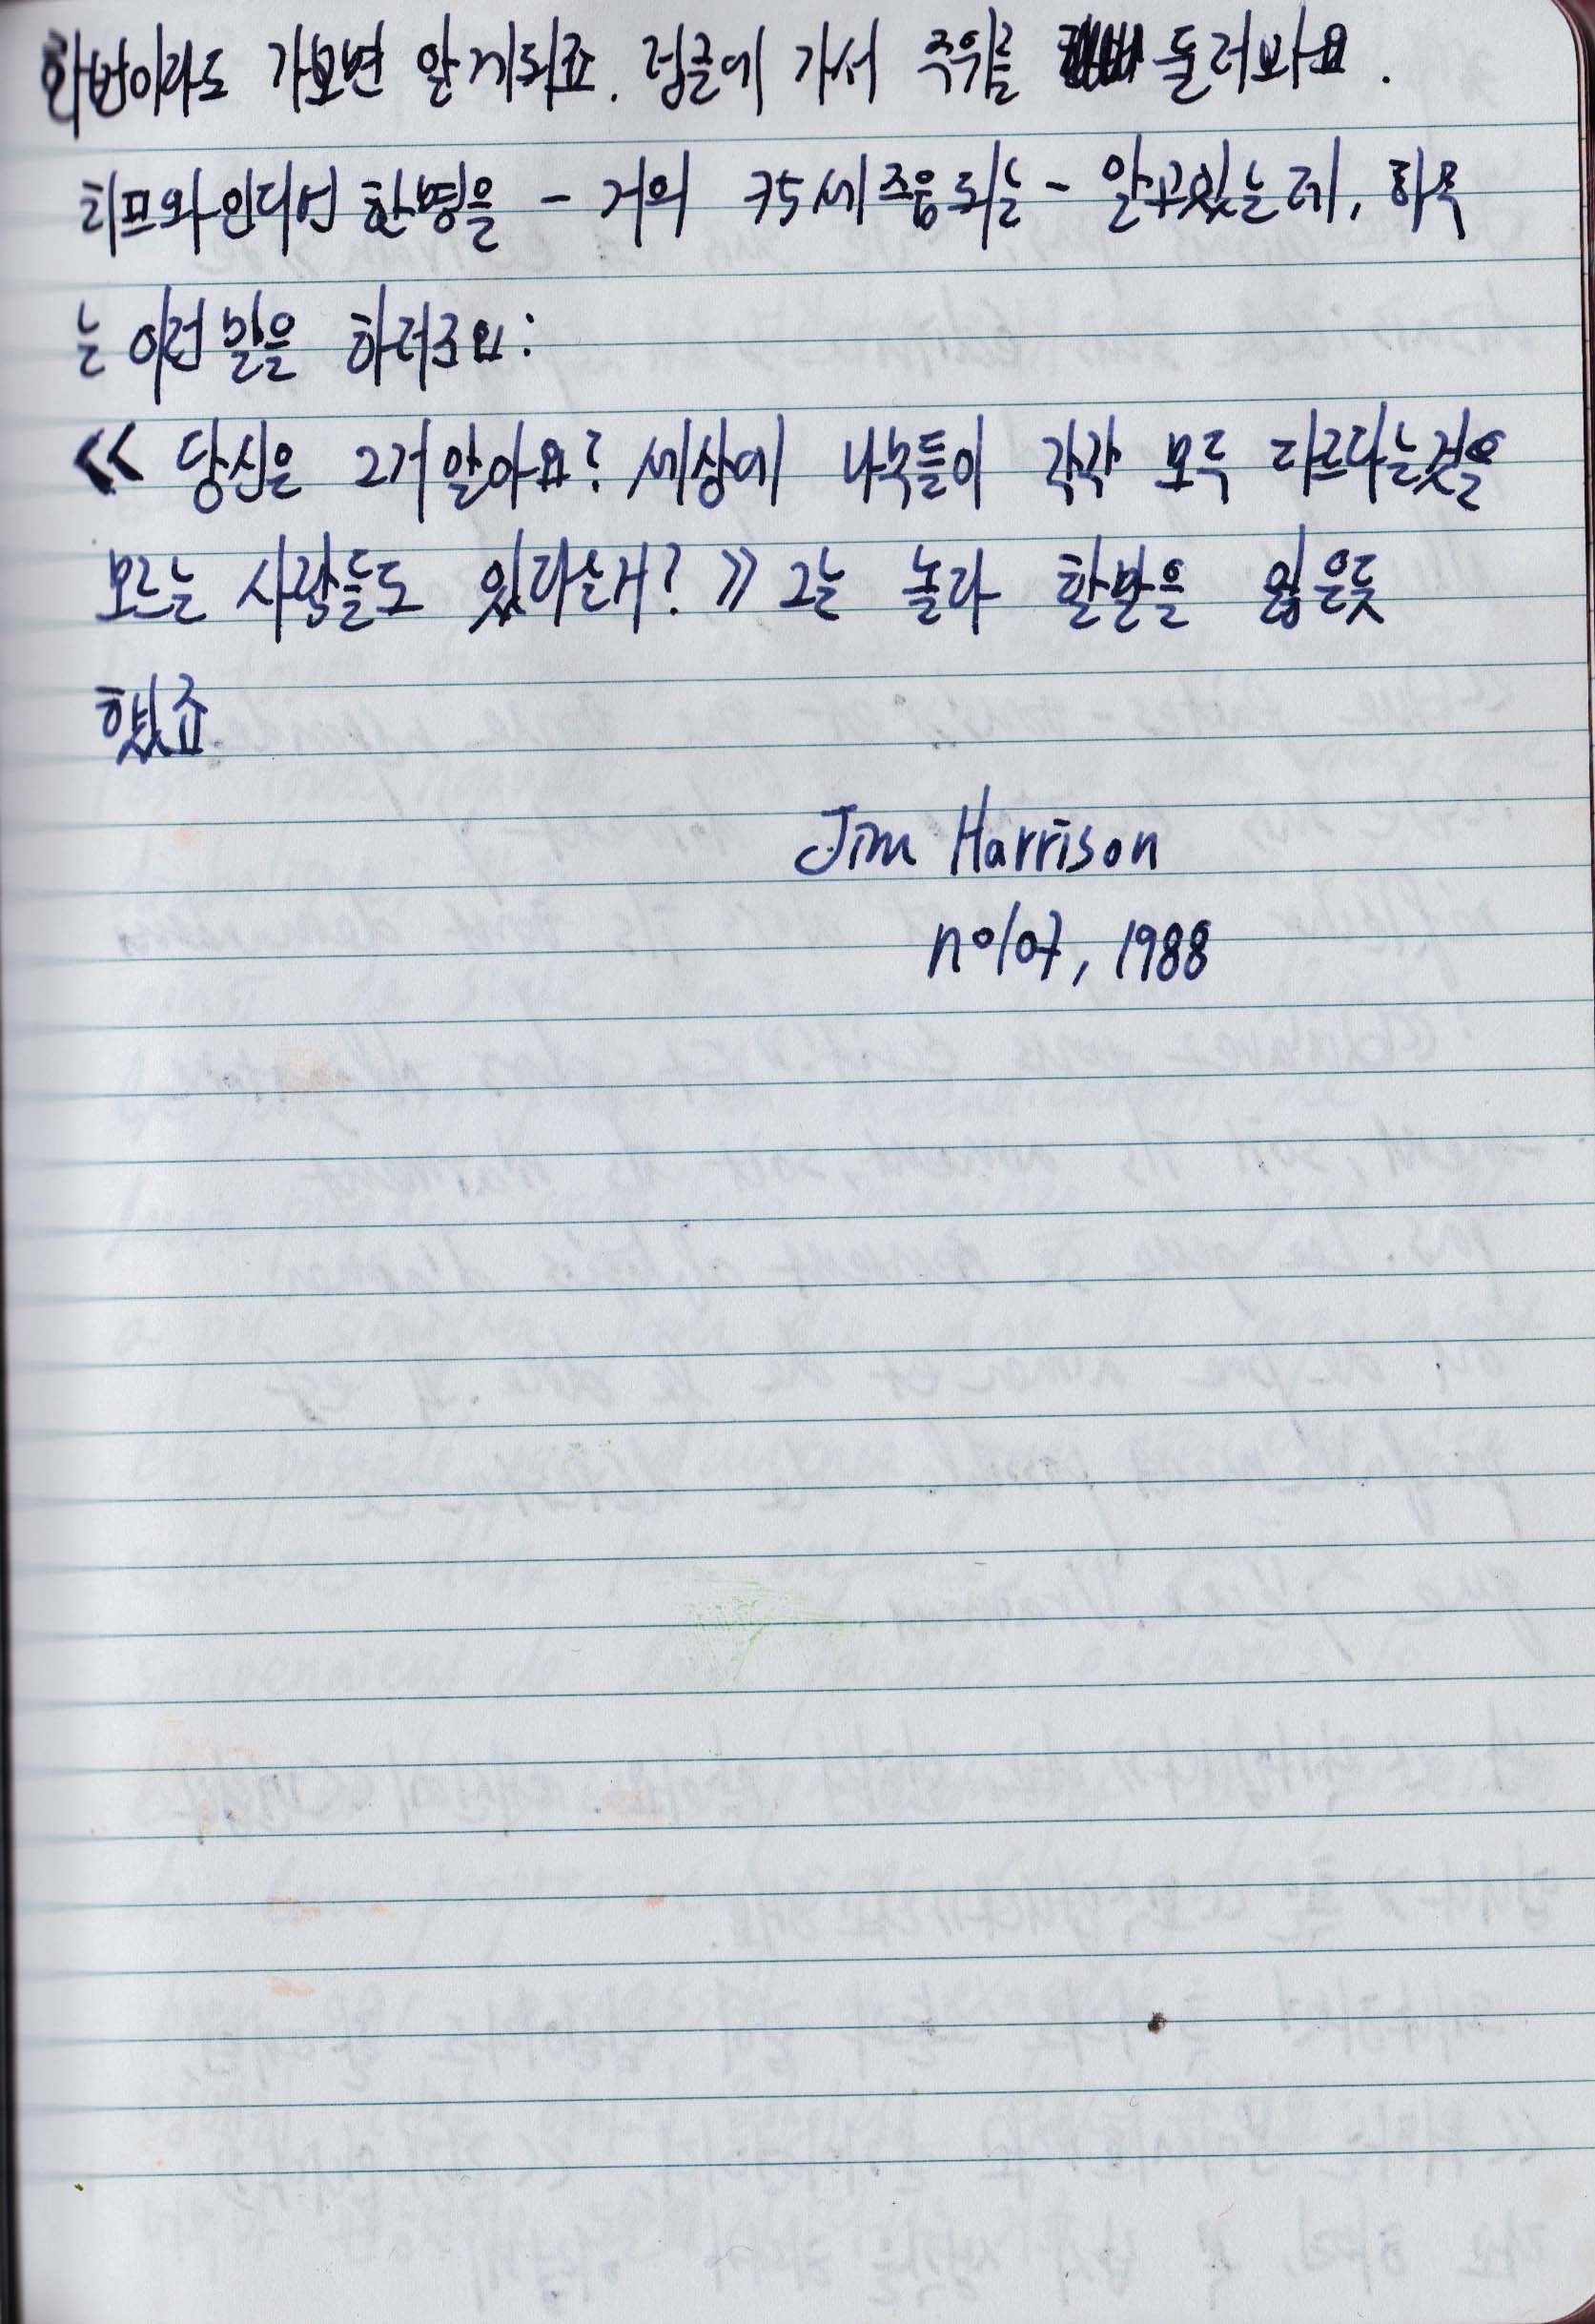 한번이라도 가보면 알게되죠. 정글에 가서 주위를 둘러봐요.
치프와 인디언 한명을 - 거의 75세쯤되는 - 알고있는데, 하루
는 이런말을 하러군요:
≪ 당신은 그거 알아요? 세상에 나무들이 각각 모두 다르다는것을
모르는 사람들도 있다는거? ≫ 그는 놀라 할말을 잃은듯
했죠
Jim Harrison
n°107, 1988